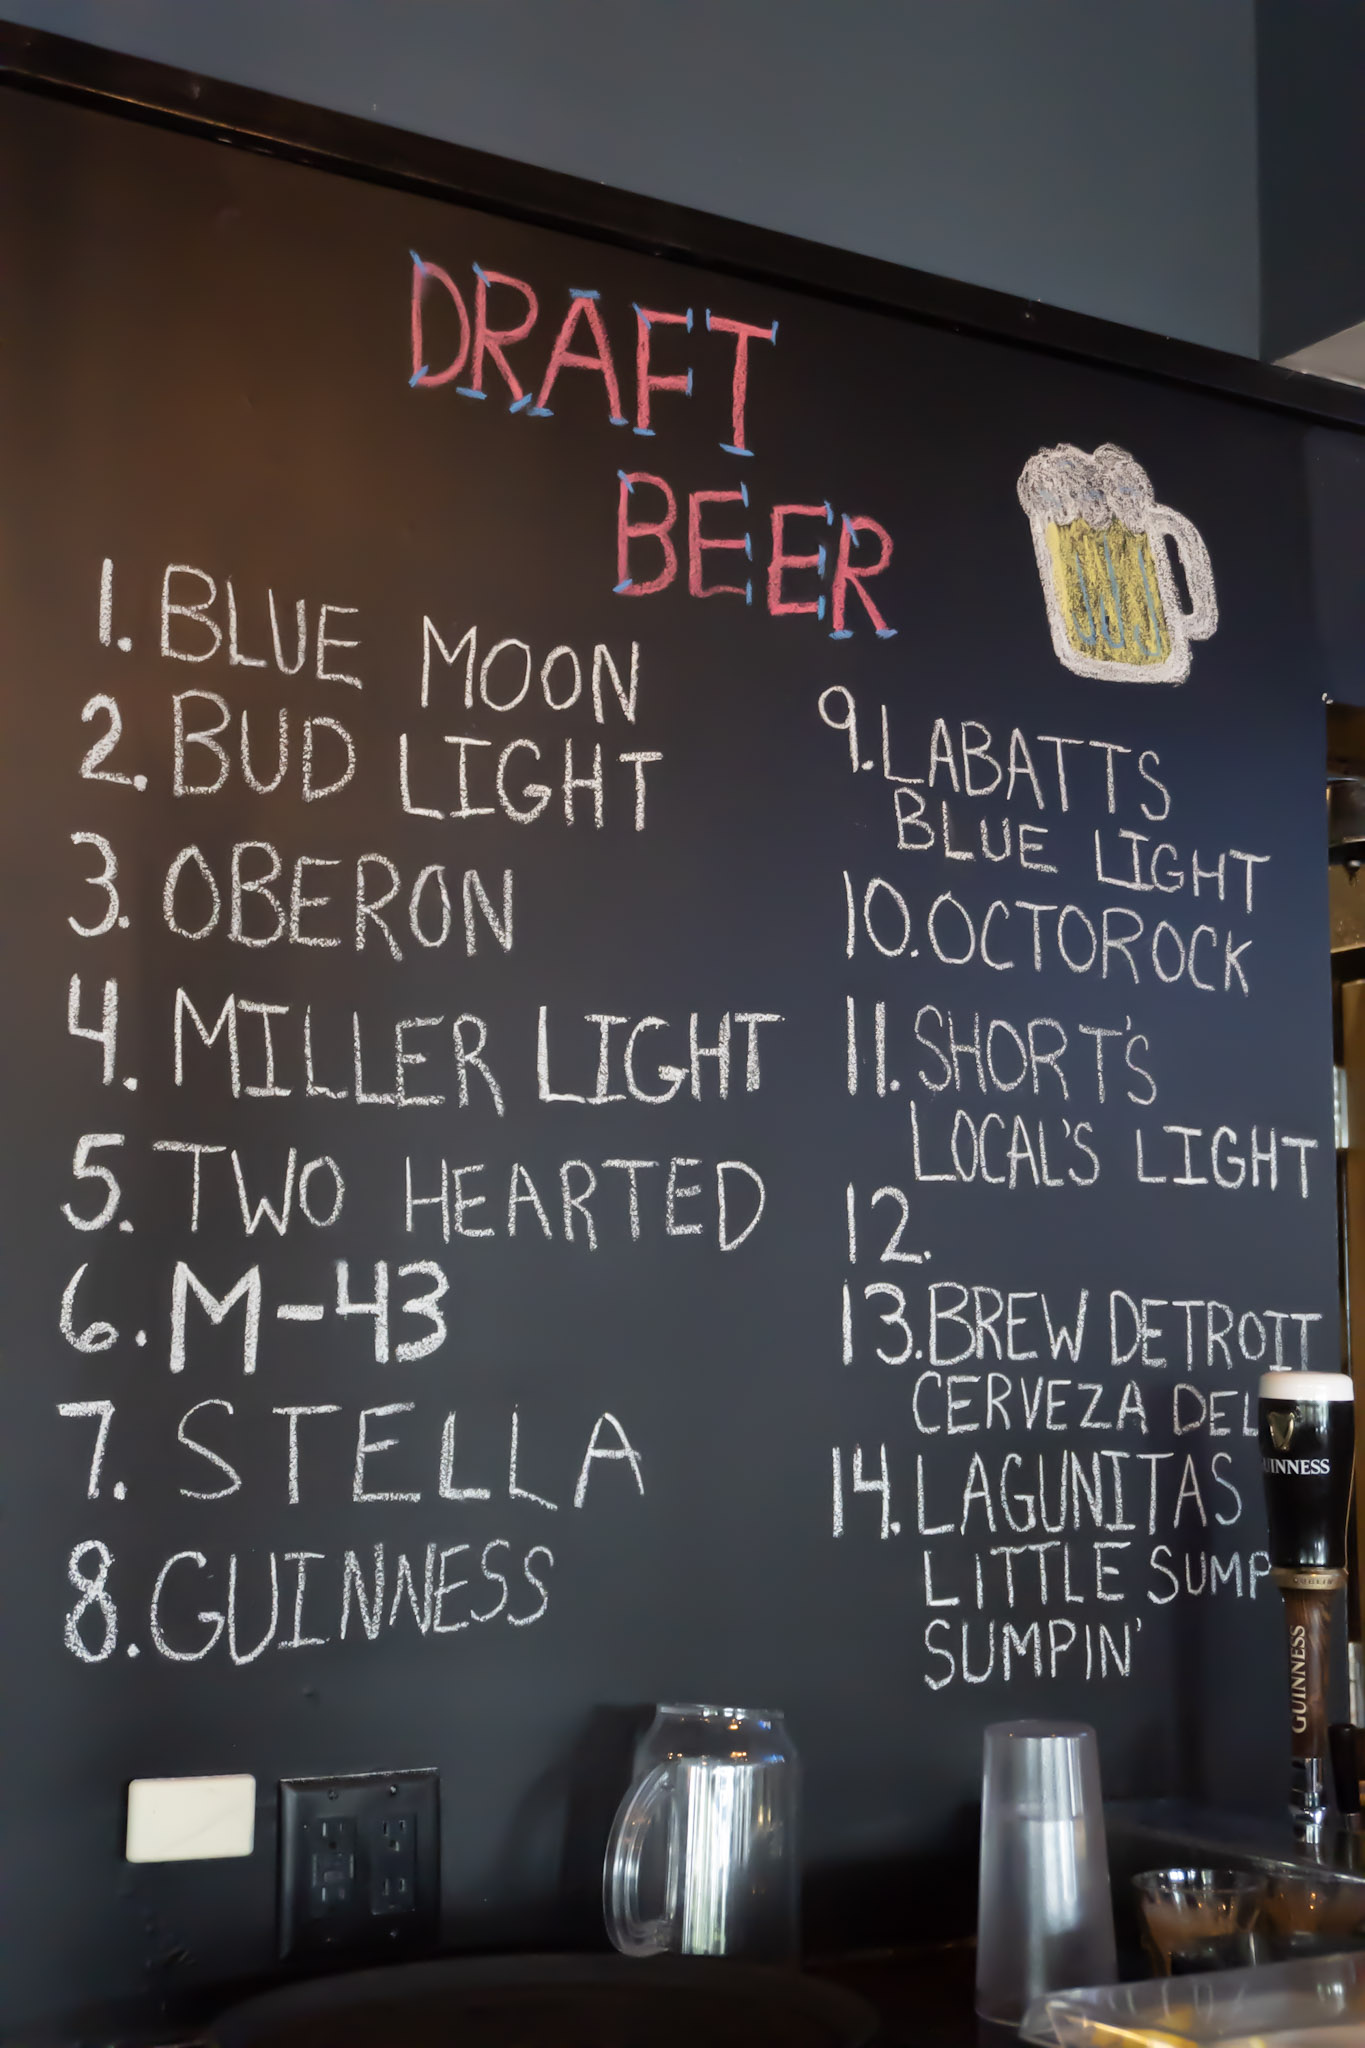 DRAFT
BEER
1. BLUE MOON
2. BUD LIGHT
3. OBERON
4. MILLER LIGHT
5. TWO HEARTED
6. M-43
7. STELLA
8. GUINNESS
9. LABATTS
BLUE LIGHT
10. OCTOROCK
11. SHORT'S
LOCAL'S LIGHT
12.
13. BREW DETROIT
CERVEZA DEL
14. LAGUNITAS
LITTLE SUMP
SUMPIN'
UINNESS
GUINNESS